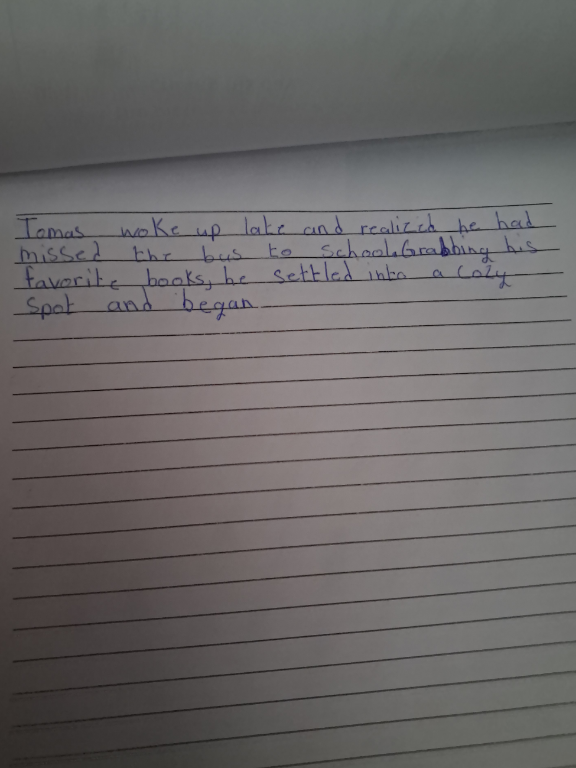 Tomas woke up late and realized he had
missed the bus to school. Grabbing his
favorite books, he settled into a cozy
spot and began